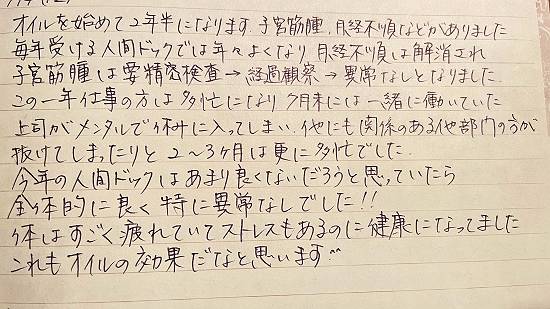 オイルを始めて2年半になります。子宮筋腫、月経不順などがありました
毎年受ける人間ドックでは年々よくなり、月経不順は解消され
子宮筋腫は要精密検査→経過観察→異常なしとなりました。
この一年仕事の方は多忙になり 7月末には一緒に働いていた
上司がメンタルで休みに入ってしまい、他にも関係のある他部門の方が
抜けてしまったりと 2～3ヶ月は更に多忙でした。
今年の人間ドックはあまり良くないだろうと思っていたら
全体的に良く 特に異常なしでした!!
体はすごく疲れていてストレスもあるのに健康になってました
これもオイルの効果だなと思います^^